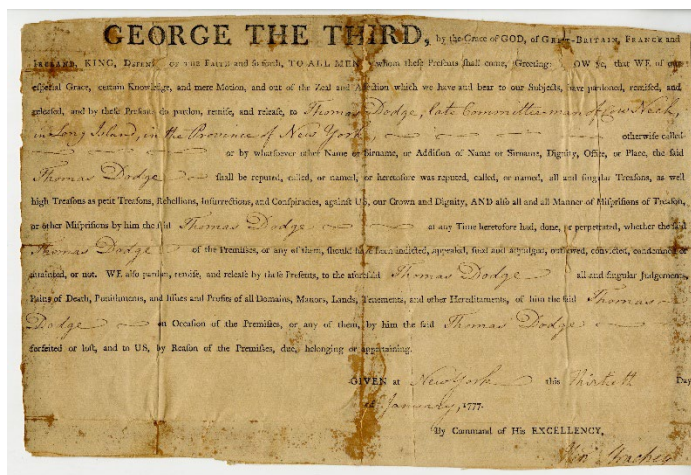 GEORGE THE THIRD, by the Grace of GOD, of GREAT-BRITAIN, FRANCE and
IRELAND, KING, DEFENDER OF THE FAITH and so forth, TO ALL MEN whom these Presents shall come, Greeting: OW ye, that WE of our
especial Grace, certain Knowledge, and mere Motion, and out of the Zeal and Affection which we have and bear to our Subjects, have pardoned, remised, and
released, and by these Presents do pardon, remise, and release, to Thomas Dodge, late Committee-man of Cow Neck,
in Long Island, in the Province of New York, otherwise called
or by whatsoever other Name or Sirname, or Addition of Name or Sirname, Dignity, Office, or Place, the said
Thomas Dodge shall be reputed, called, or named, or heretofore was reputed, called, or named, all and singular Treasons, as well
high Treasons as petit Treasons, Rebellions, Insurrections, and Conspiracies, against US, our Crown and Dignity, AND also all and all Manner of Misprisions of Treason,
or other Misprisions by him the said Thomas Dodge at any Time heretofore had, done, or perpetrated, whether the said
Thomas Dodge of the Premises, or any of them, should have been indicted, appealed, sued and adjudged, outlawed, convicted, condemned or
attainted, or not. WE also pardon, remise, and release by these Presents, to the aforesaid Thomas Dodge all and singular Judgements,
Pains of Death, Punishments, and Issues and Profits of all Domains, Manors, Lands, Tenements, and other Hereditaments, of him the said Thomas
Dodge on Occasion of the Premises, or any of them, by him the said Thomas Dodge
forfeited or lost, and to US, by Reason of the Premises, due, belonging or appertaining.
GIVEN at New York this thirtieth Day
of January, 1777.
By Command of His EXCELLENCY,